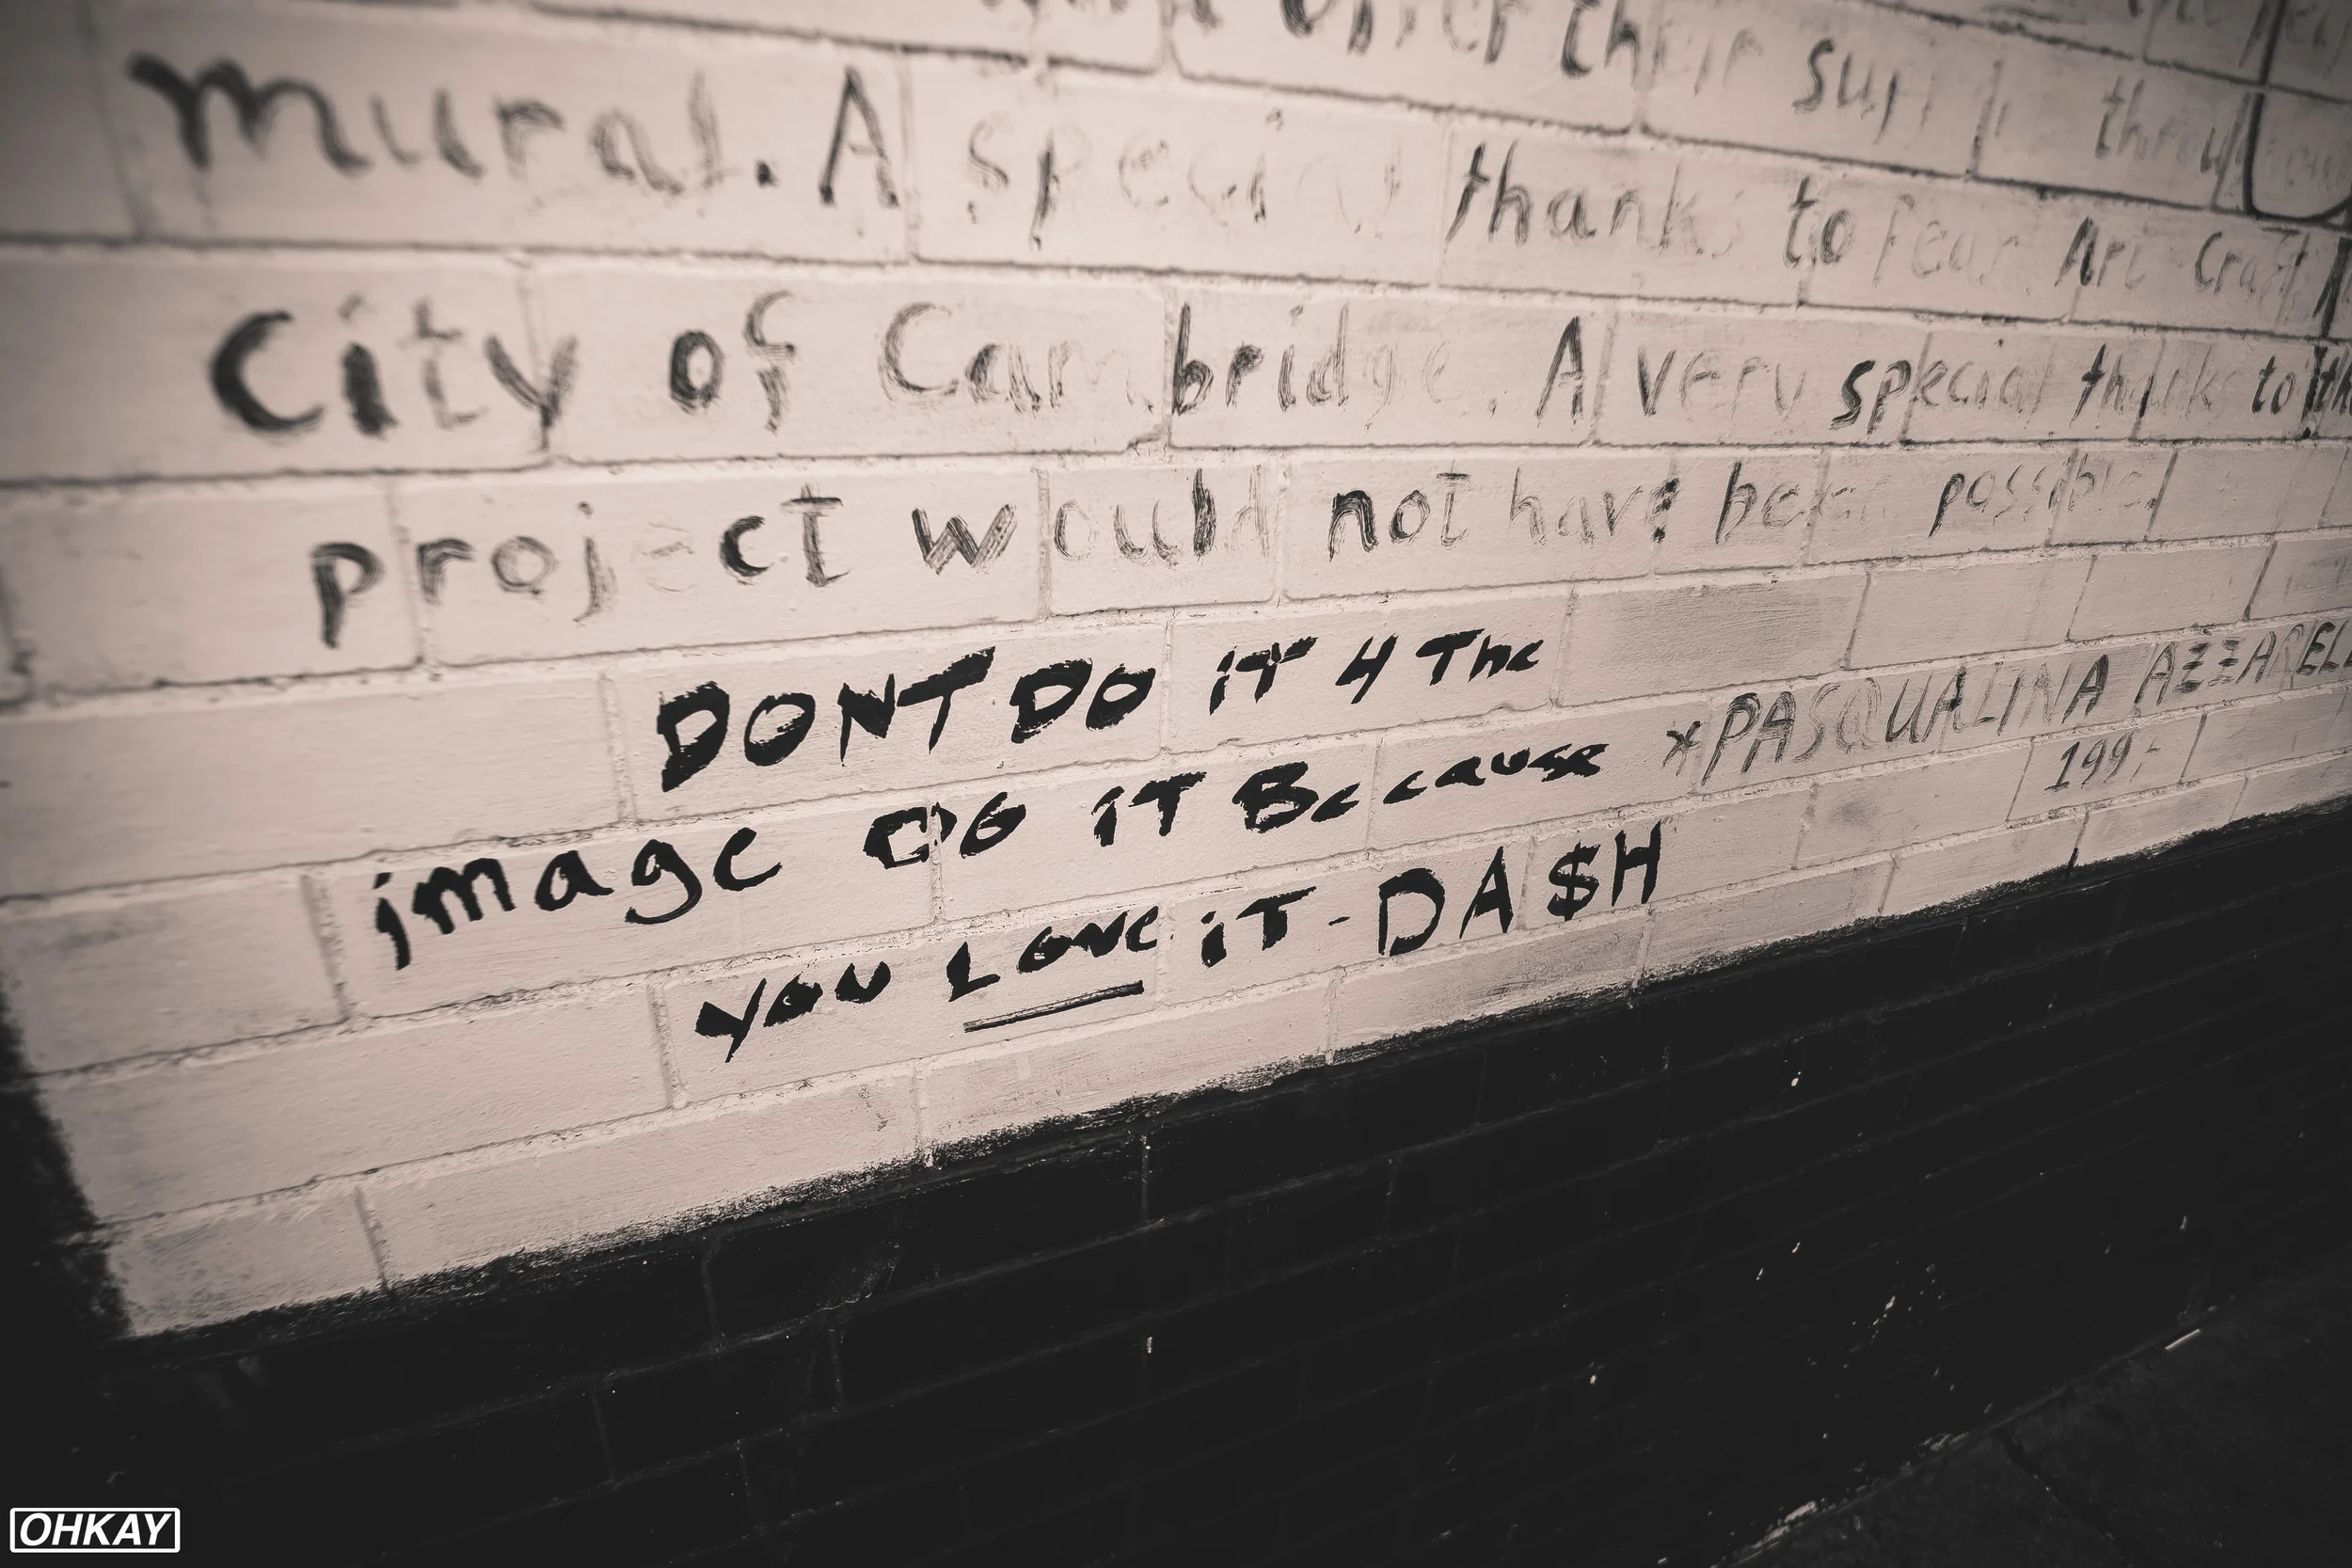 their
mural. A special thanks to Art Craft
City of Cambridge. A very special thanks to
project would not have been possible.
DONT DO iT 4 The
image DO iT Because
you Love iT - DA$H
*PASQUALINA
OHKAY